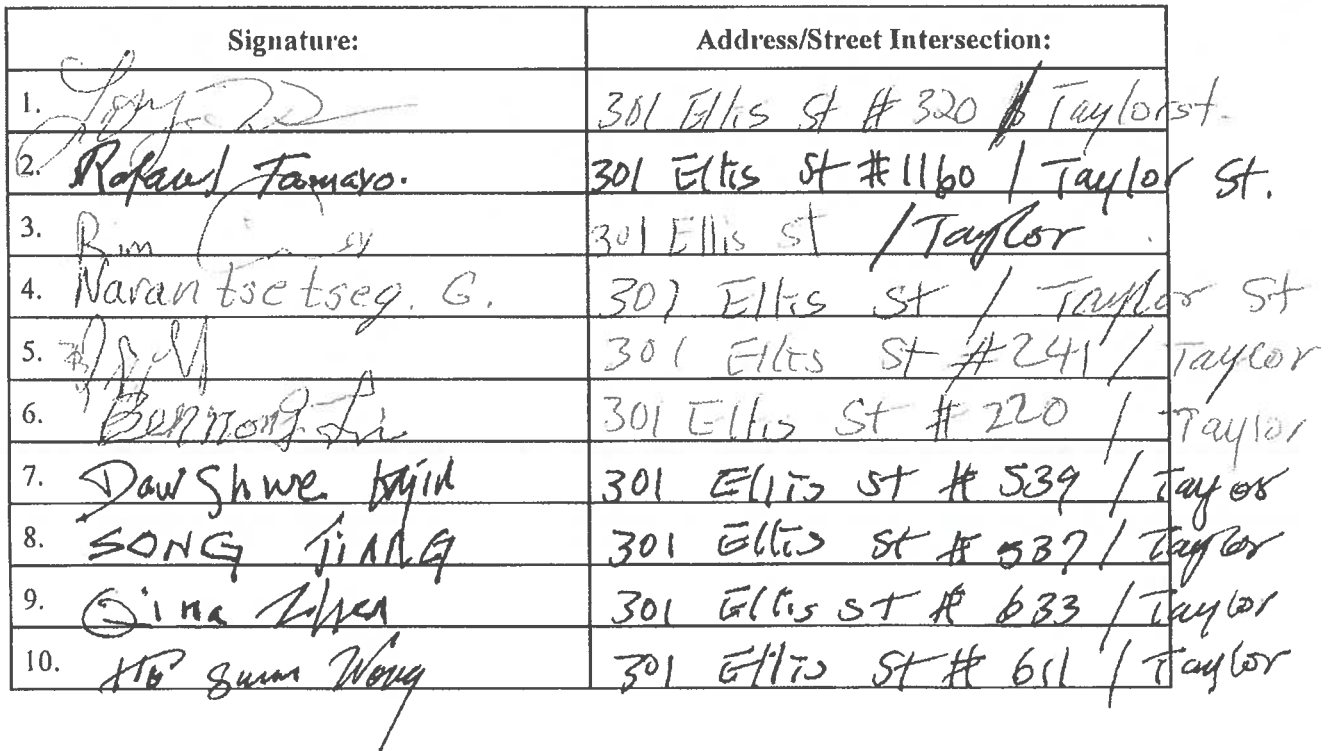 Signature: Address/Street Intersection:
1. 301 Ellis St # 320 / Taylor st.
2. Rafael Tamayo. 301 Ellis St #1160 / Taylor St.
3. Rim 301 Ellis St / Taylor
4. Narantsetseg. G. 301 Ellis St / Taylor St
5. 301 Ellis St #241 / Taylor
6. Li 301 Ellis St # 220 / Taylor
7. Daw Shwe 301 Ellis St # 539 / Taylor
8. SONG JIANG 301 Ellis St # 537 / Taylor
9. 301 Ellis St # 633 / Taylor
10. Wong 301 Ellis St # 611 / Taylor